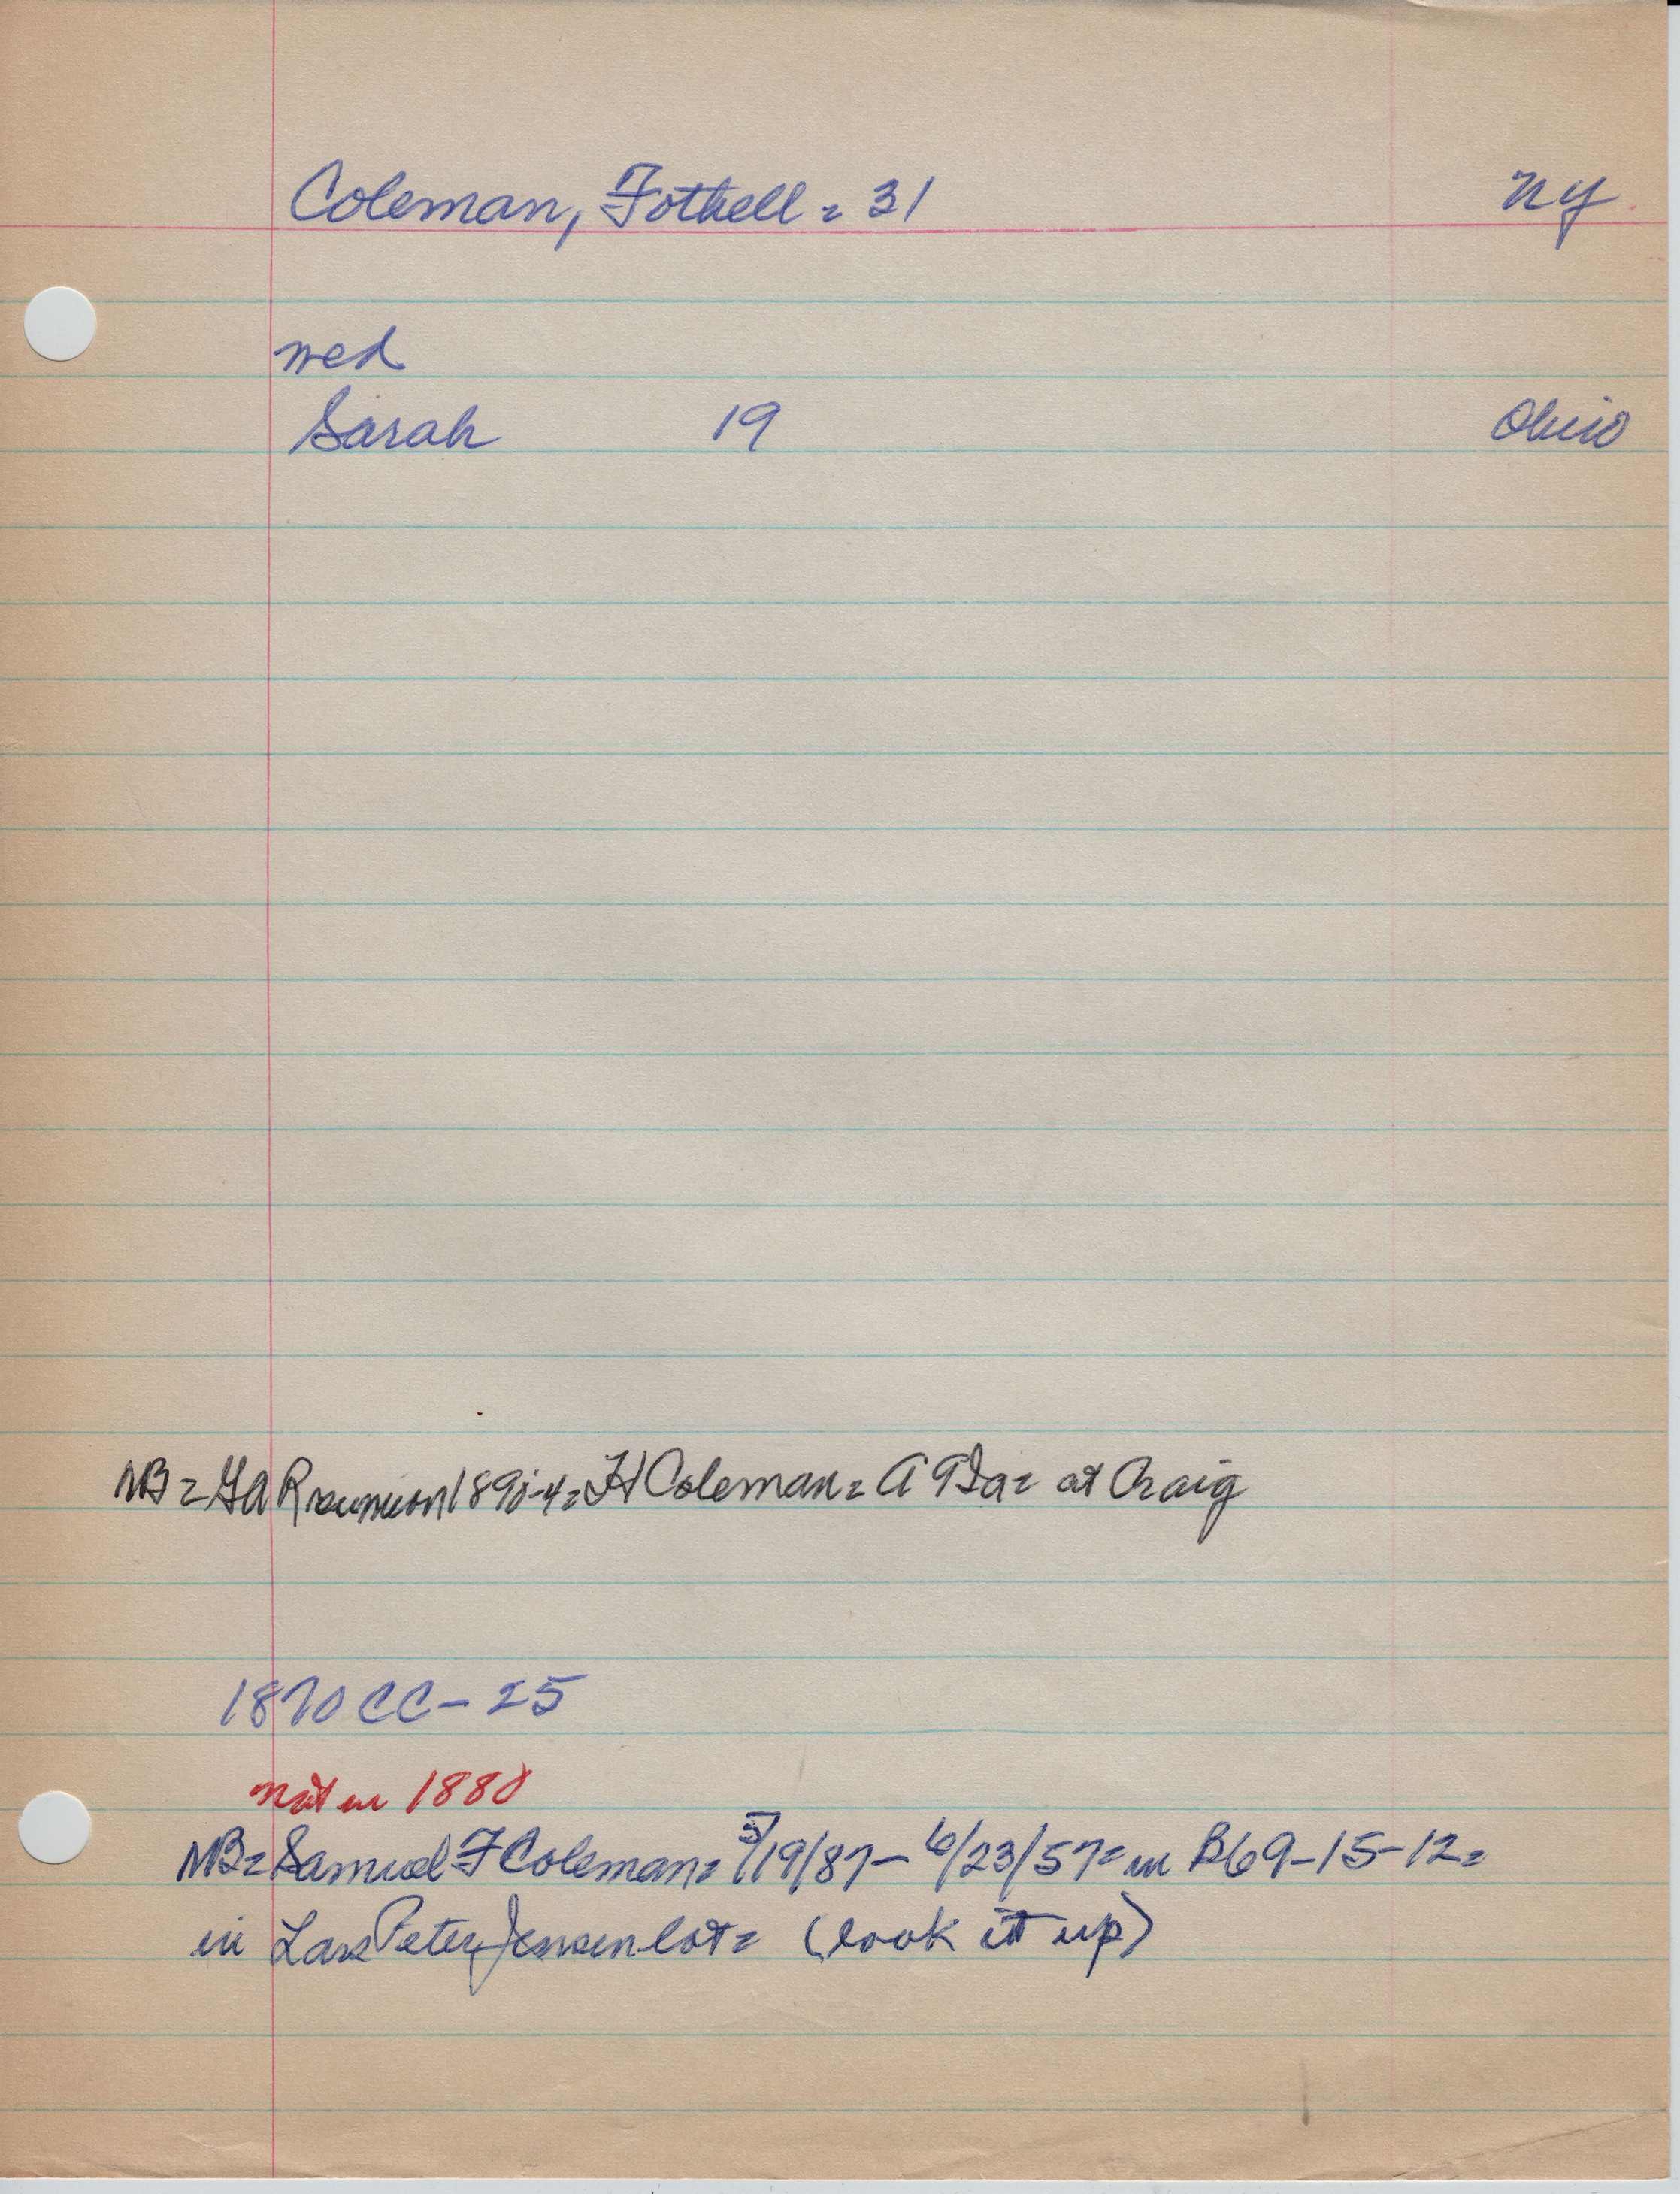 Coleman, Fothell = 31 NY
wed
Sarah 19 Ohio
NB = GAR reunion 1890-4 = FH Coleman = A 9 Ia = at Craig
1870 CC - 25
not in 1880
NB = Samuel F Coleman = 5/19/87 - 6/23/57 = in B69-15-12 =
in Lars Peter Jensen lot = (look it up)